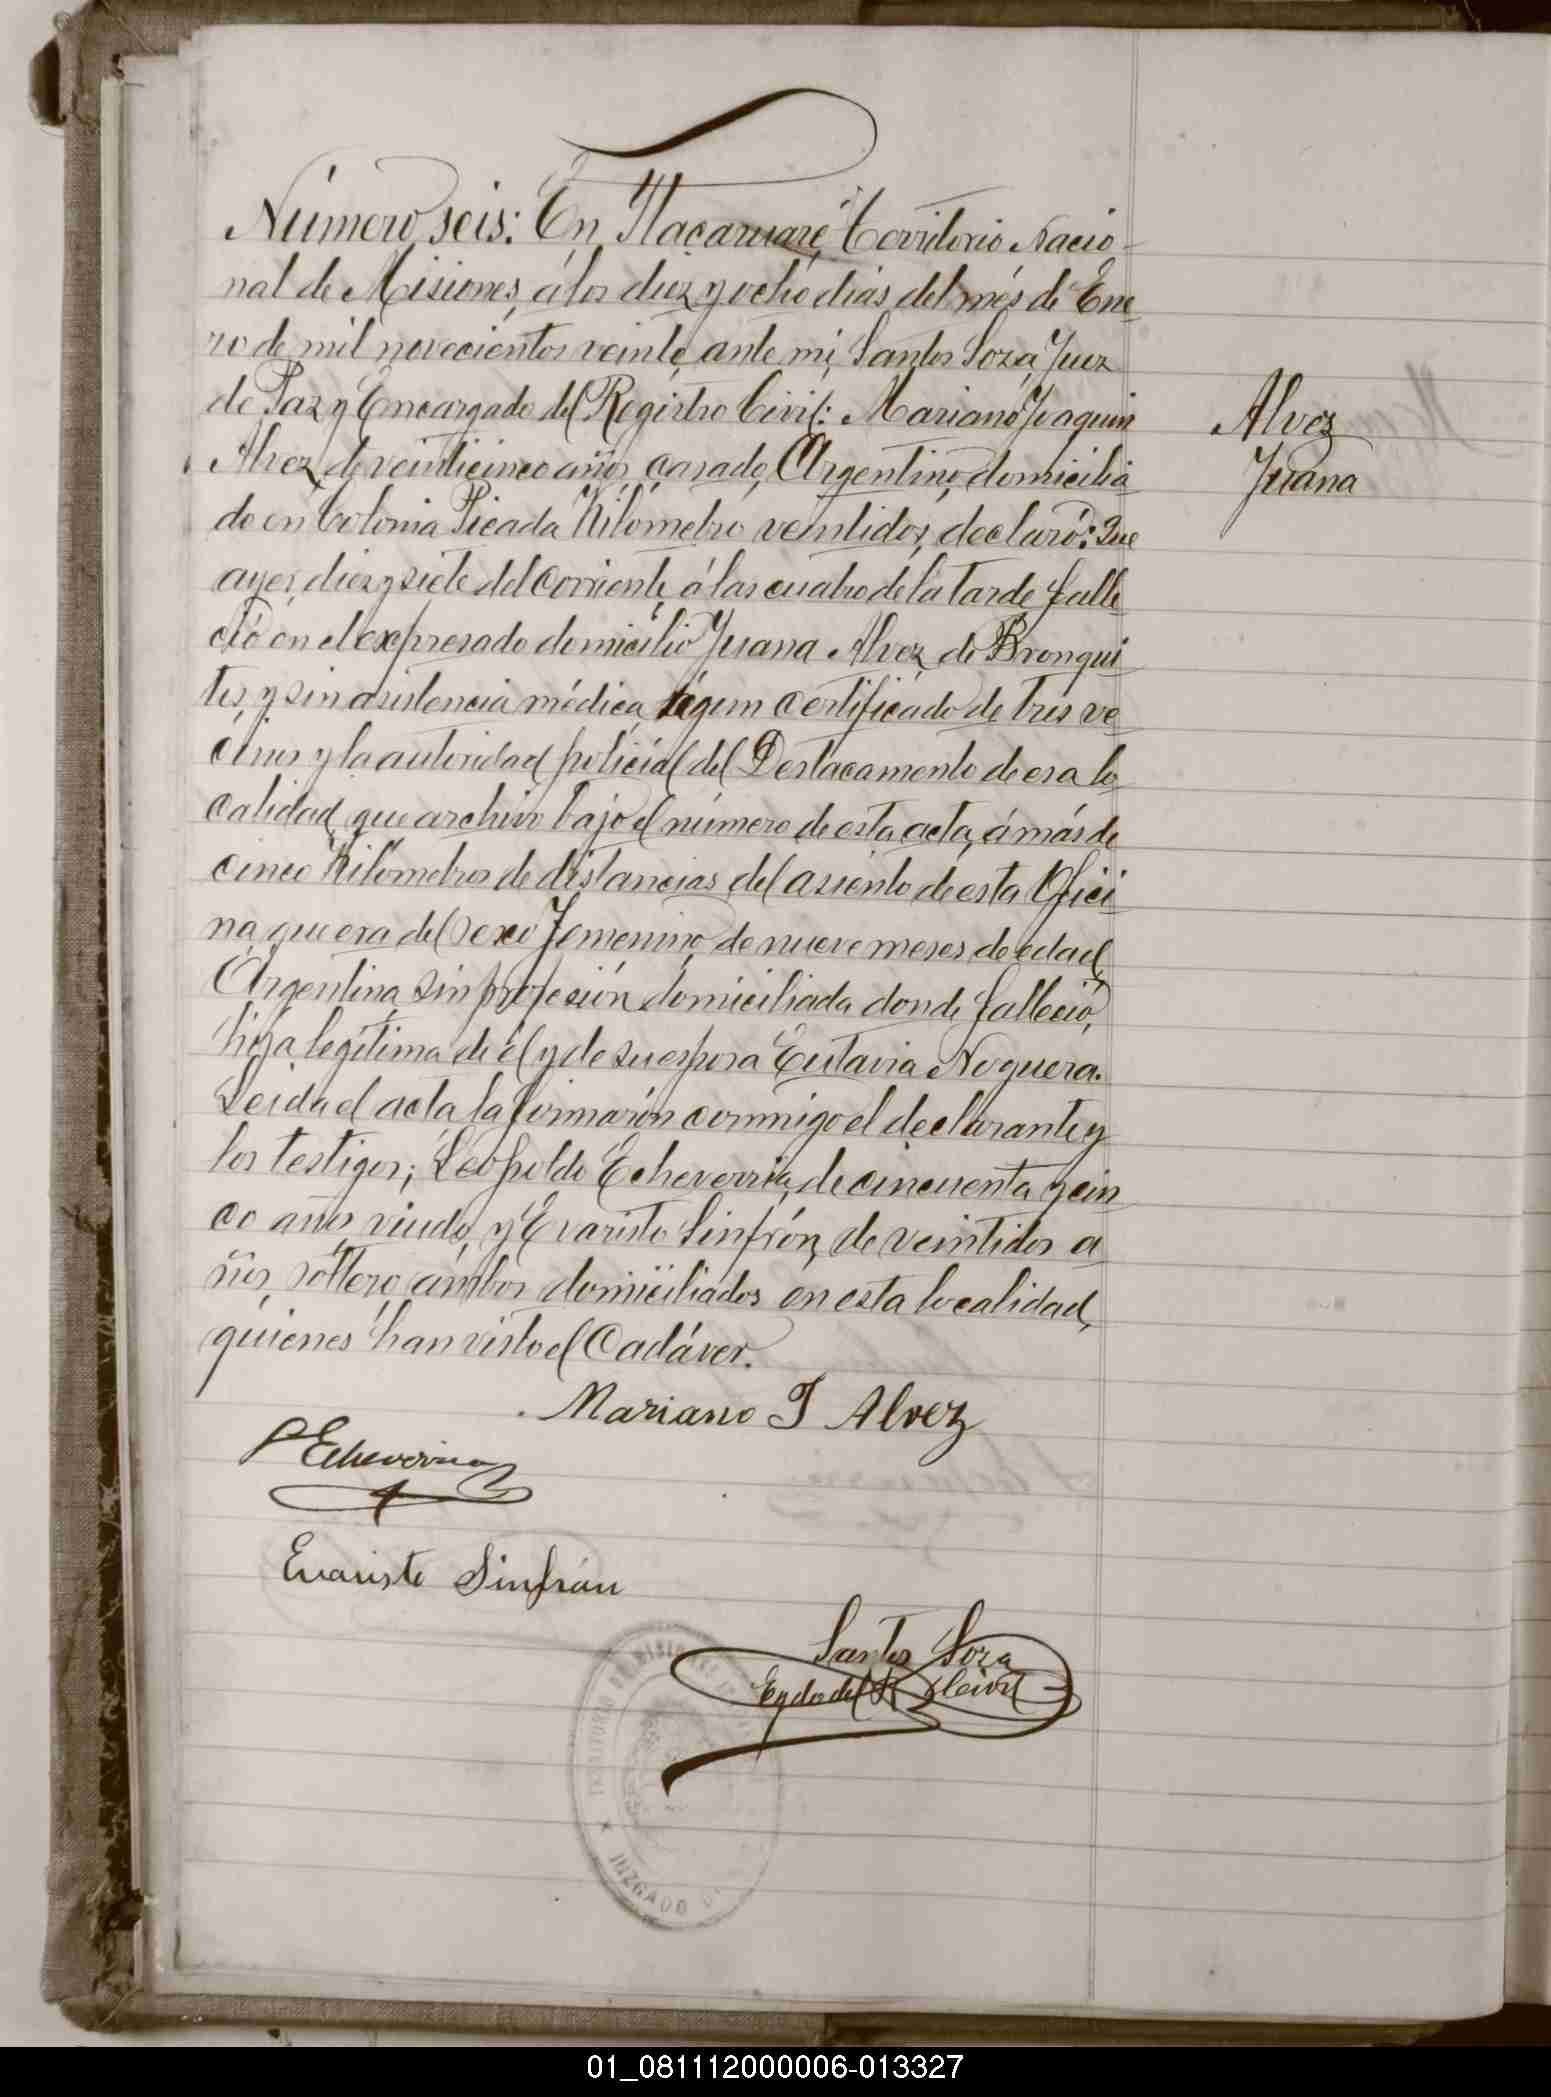 Número seis: En Itacaruaré, Territorio Nacio-
nal de Misiones, á los diez y ocho dias del més de Ene-
ro de mil novecientos veinte, ante mi, Santos Soza, Juez
de Paz y Encargado del Registro Civil: Mariano Joaquin
Alvez, de veinticinco años, casado, Argentino, domicilia-
do en Colonia Picada Kilómetro veintidos, declaró: Que
ayer, diez y siete del corriente, á las cuatro de la tarde falle-
ció en el expresado domicilio Juana Alvez de Bronqui-
tes, y sin asistencia médica, ségun certificado de tres ve-
cinos y la autoridad policial del Destacamento de esa lo-
calidad, que archivo bajo el número de esta acta, á más de
cinco Kilómetros de distancias del asiento de esta Ofici-
na, que era del sexo Femenino, de nueve meses de edad,
Argentina, sin profesión, domiciliada donde falleció,
hija legítima de él y de su esposa Eutavia Noguera.
Leida el acta la firmarón conmigo el declarante y
los testigos; Leopoldo Echeverria, de cincuenta y cin-
co años, viudo, y Evaristo Sinfrón, de veintidos a-
ños, sóltero, ámbos domiciliados en esta localidad,
quienes han visto el Cadáver.
Alvez
Juana
Mariano J Alvez
L Echeverria
Evaristo Sinfrán
Santos Soza
Egdo del R Civil
TERRITORIO DE MISIONES
JUZGADO DE
01_081112000006-013327